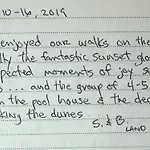 10-16, 2019
enjoyed our walks on the
lly the fantastic sunset glo
pected moments of joy se
g... and the group of 4-5
n the pool house & the dec
king the dunes
S. & B.
LAND